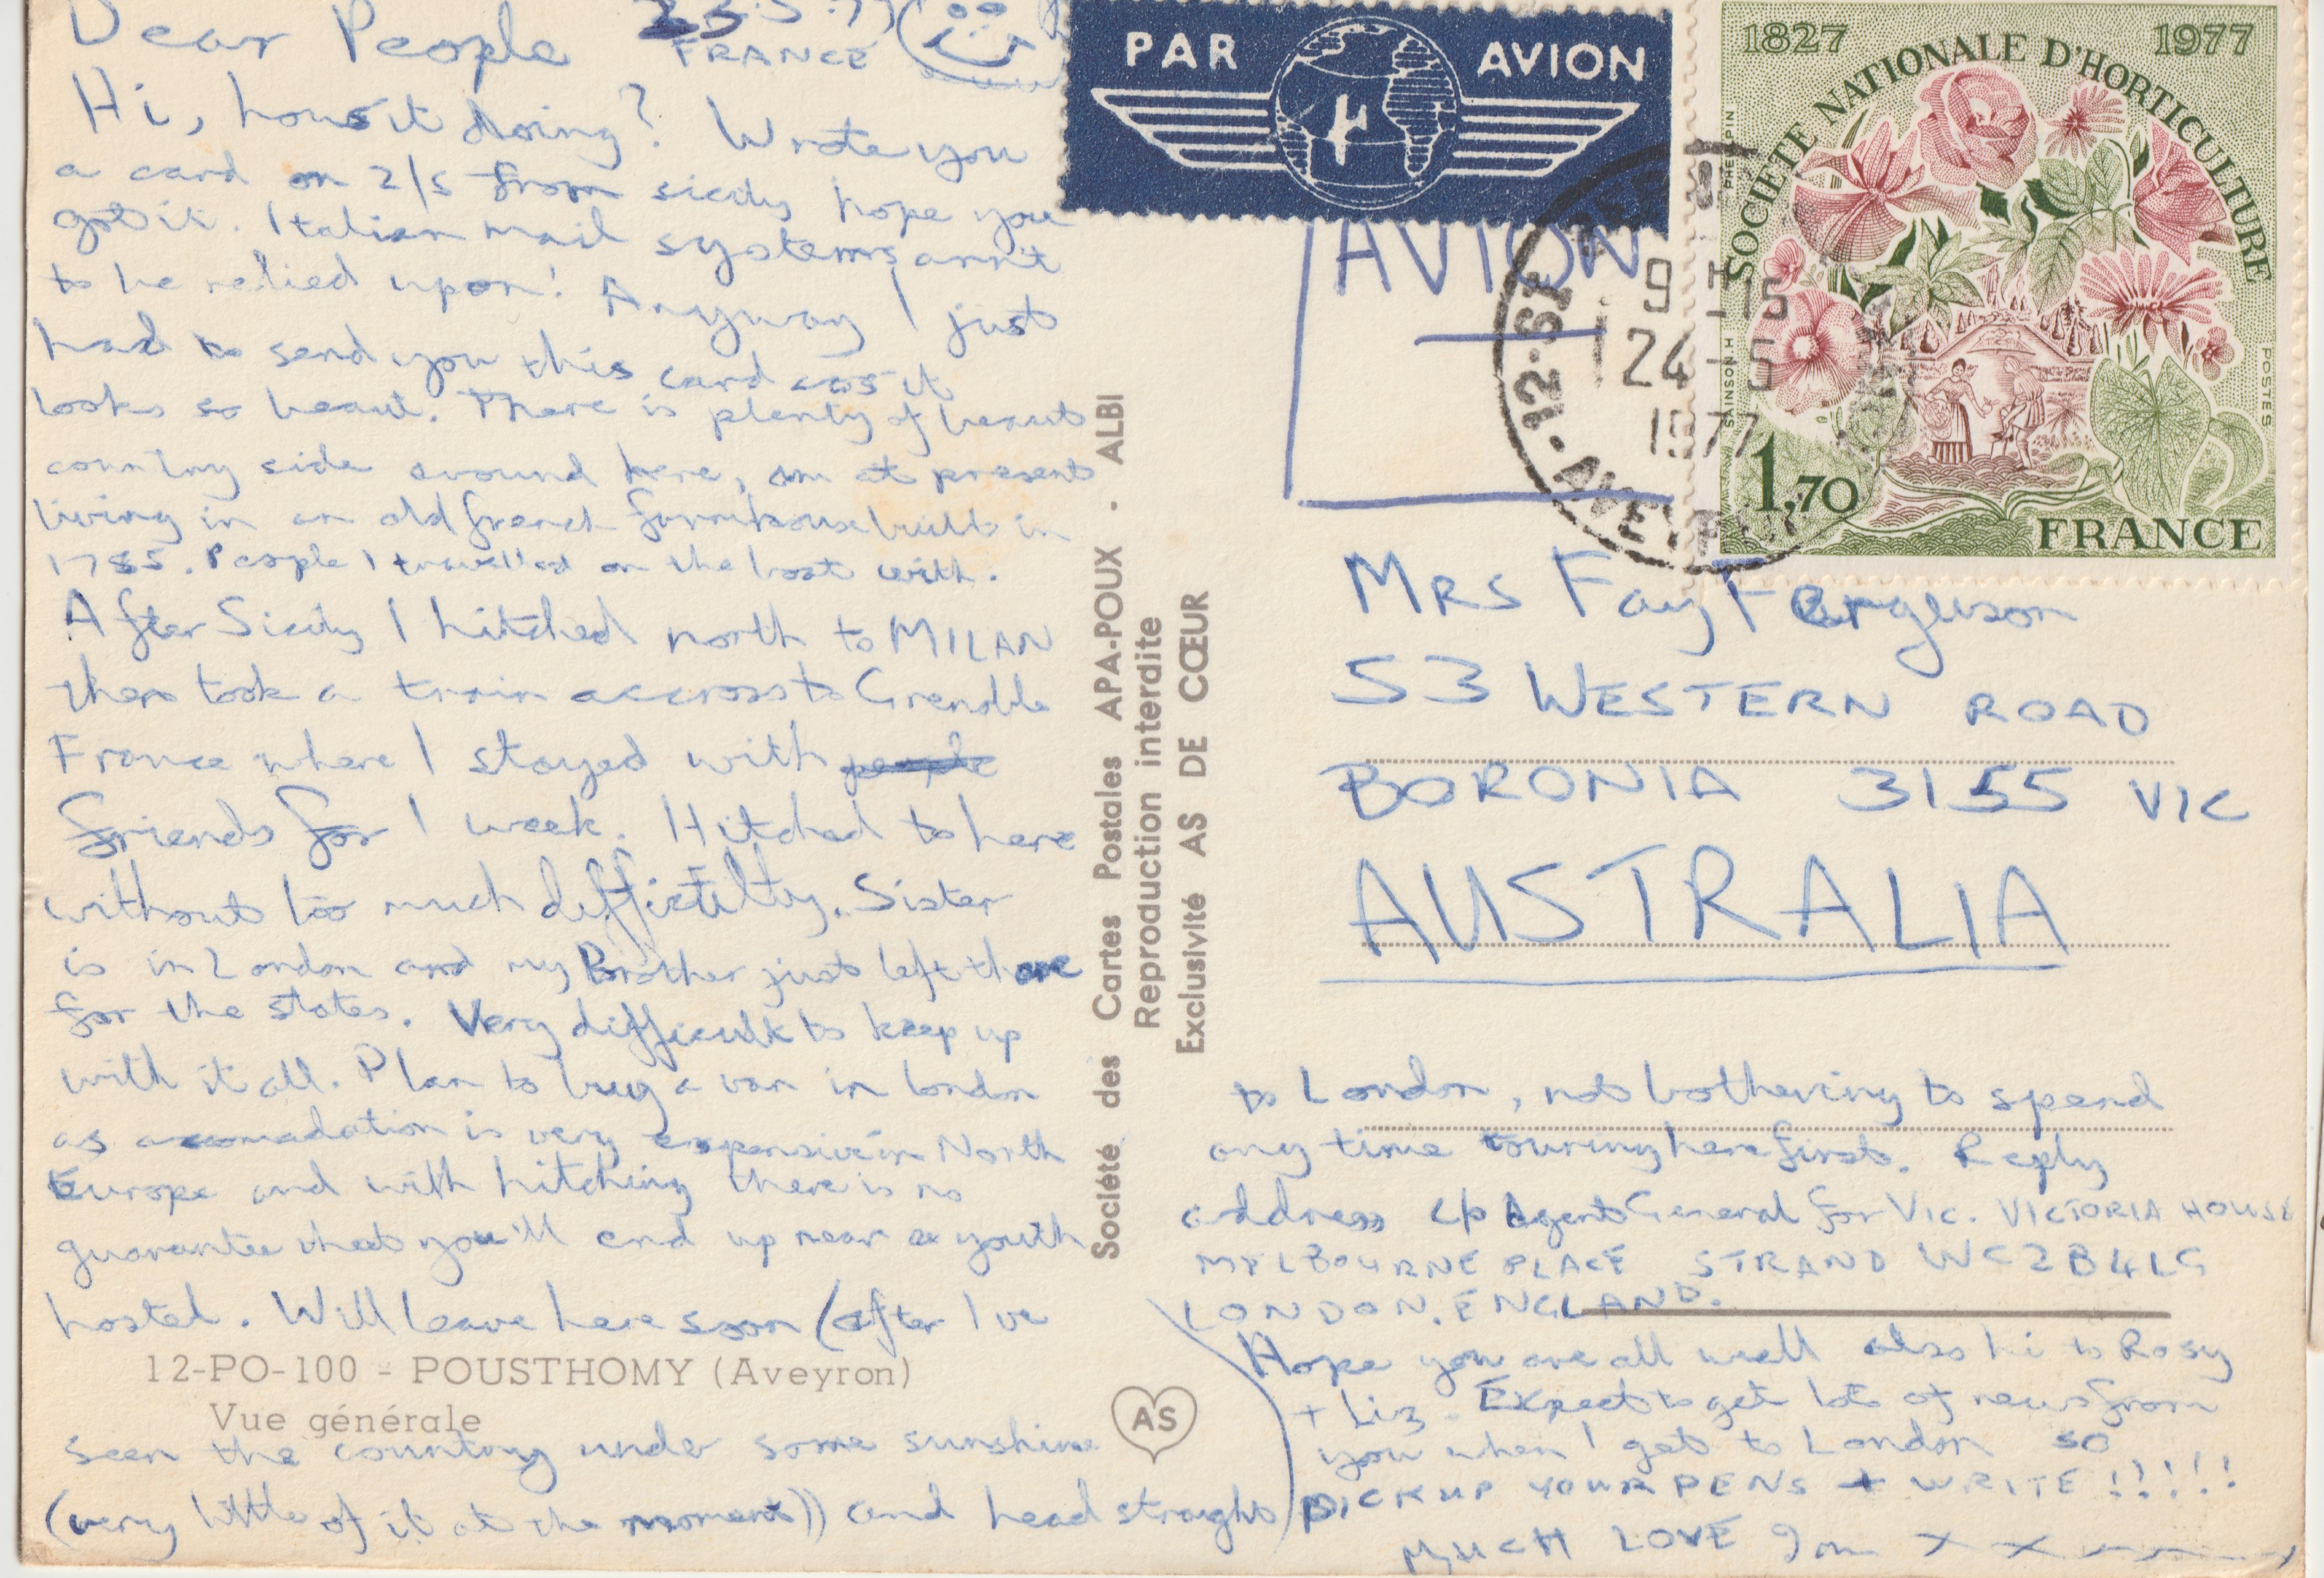 Dear People 23.5.77
FRANCE
Hi, hows it doing? Wrote you
a card on 2/5 from sicily hope you
got it. Italian mail systems arn't
to be relied upon! Anyway I just
had to send you this card cos it
looks so beaut. There is plenty of beaut
country side around here, am at present
living in an old french farmhouse built in
1785. People I travelled on the boat with.
After Sicily I hitched north to MILAN
then took a train accross to Grenoble
France where I stayed with people
friends for 1 week. Hitched to here
without too much difficulty. Sister
is in London and my Brother just left there
for the states. Very difficult to keep up
with it all. Plan to buy a van in london
as accomadation is very expensive in North
Europe and with hitching there is no
guarantee that you'll end up near a youth
hostel. Will leave here soon (after I've
12-PO-100 - POUSTHOMY (Aveyron)
Vue générale
seen the country under some sunshine
(very little of it at the moment)) and head straight
Société des Cartes Postales APA-POUX - ALBI
Reproduction interdite
Exclusivité AS DE CŒUR
AS
PAR AVION
AVION
1827 1977
SOCIÉTÉ NATIONALE D'HORTICULTURE
PHEULPIN
SAINSON.H
POSTES
1,70
FRANCE
12-ST
9 H 15
24 - 5
1977
AVEYRON
Mrs Fay Ferguson
53 WESTERN ROAD
BORONIA 3155 VIC
AUSTRALIA
to London, not bothering to spend
any time touring here first. Reply
address c/o Agent General for Vic. VICTORIA HOUSE
MELBOURNE PLACE STRAND WC2B4LG
LONDON. ENGLAND.
Hope you are all well also hi to Rosy
+ Liz. Expect to get lots of news from
you when I get to London so
PICK UP YOUR PENS + WRITE !!!!!
MUCH LOVE X X